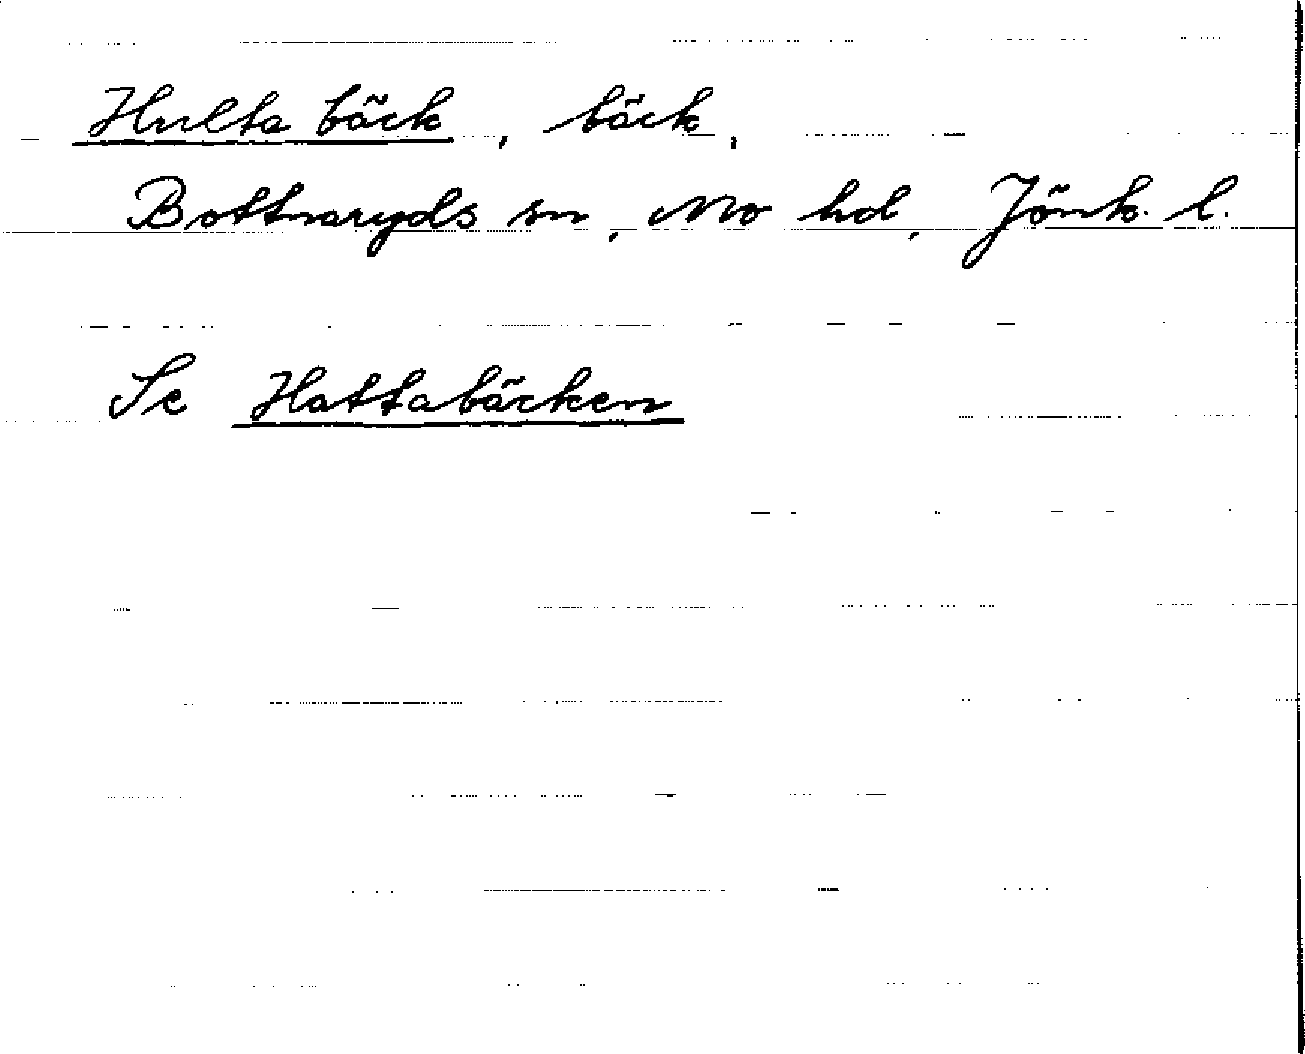 Hulta bäck, bäck,
Bottnaryds sn, Mo hd, Jönk. l.
Se Hattabäcken